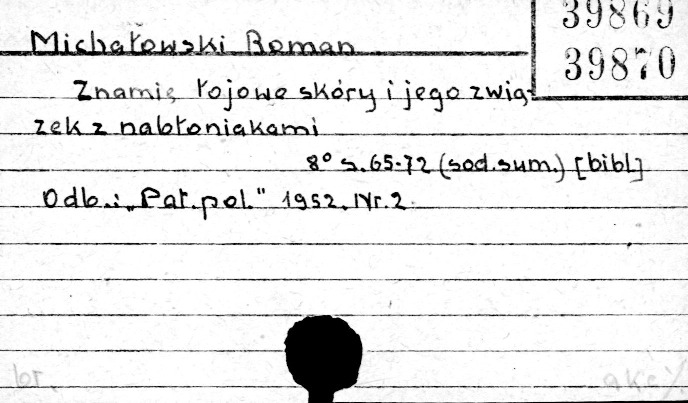 39869
39870
Michałowski Roman
Znamię łojowe skóry i jego zwią-
zek z nabłoniakami
8° s.65-72 (sod.sum.) [bibl]
Odb.: „Pat.pol." 1952. Nr.2
br.
akc